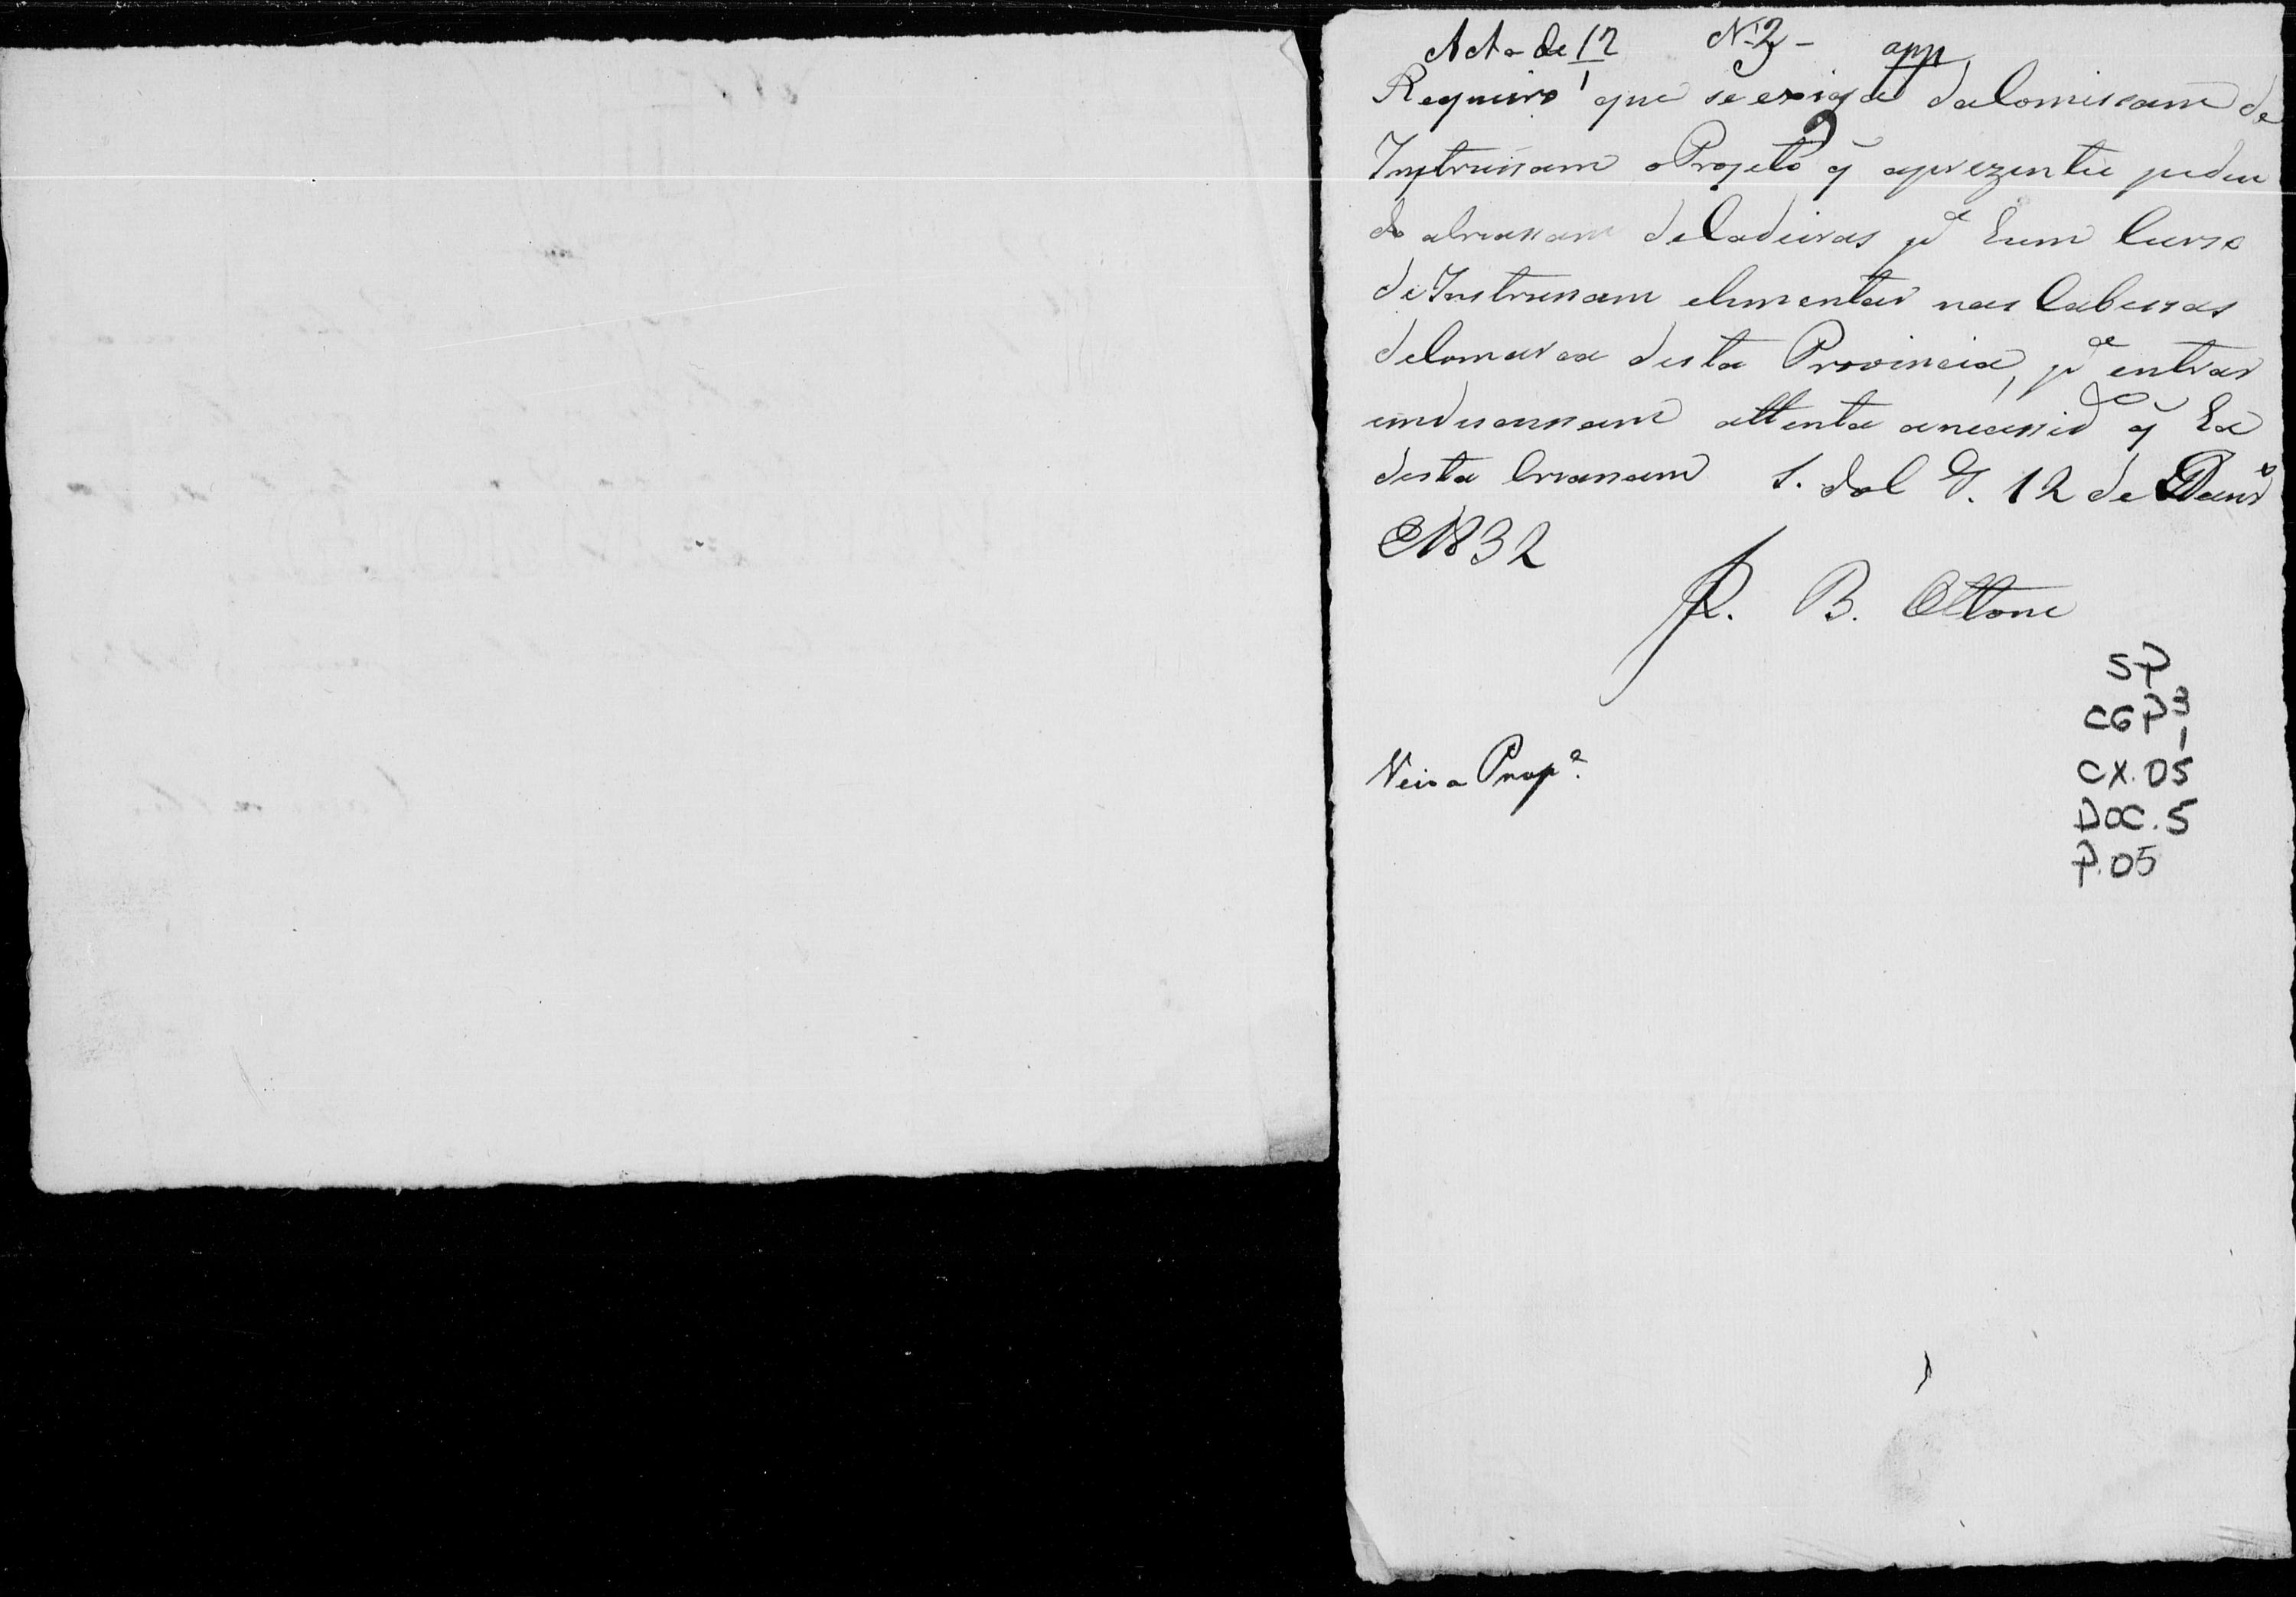 Acta de 12 N. 2 - app
1
Requeiro que se exiga da Comissam de
Instrussam o Projeto q̃ aprezentei pedin
do a Creassam de Cadeiras pª hum Curso
de Instrussam elementar nas Cabessas
de Comarca desta Provincia, pª entrar
em discussam attenta a necessidᵉ q̃ ha
desta Creassam S. do C. G. 12 de Dezbrº
1832
J. B. Ottoni
SP
CGP³
1
CX. 05
DOC. 5
P. 05
Propª.